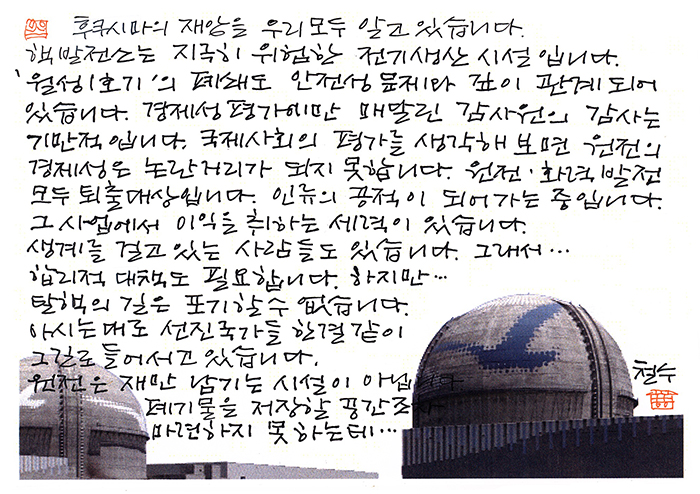 후쿠시마의 재앙을 우리 모두 알고 있습니다.
핵 발전소는 지극히 위험한 전기생산 시설입니다.
'월성1호기'의 폐쇄도 안전성 문제와 깊이 관계되어
있습니다. 경제성 평가에만 매달린 감사원의 감사는
기만적입니다. 국제사회의 평가를 생각해 보면 원전의
경제성은 논란거리가 되지 못합니다. 원전·화력발전
모두 퇴출대상입니다. 인류의 공적이 되어가는 중입니다.
그 사업에서 이익을 취하는 세력이 있습니다.
생계를 걸고 있는 사람들도 있습니다. 그래서…
합리적 대책도 필요합니다. 하지만…
탈핵의 길은 포기할 수 없습니다.
아시는대로 선진국가들 한결같이
그 길로 들어서고 있습니다.
원전은 재만 남기는 시설이 아닙니다
폐기물을 저장할 공간조차
마련하지 못하는데…
철수